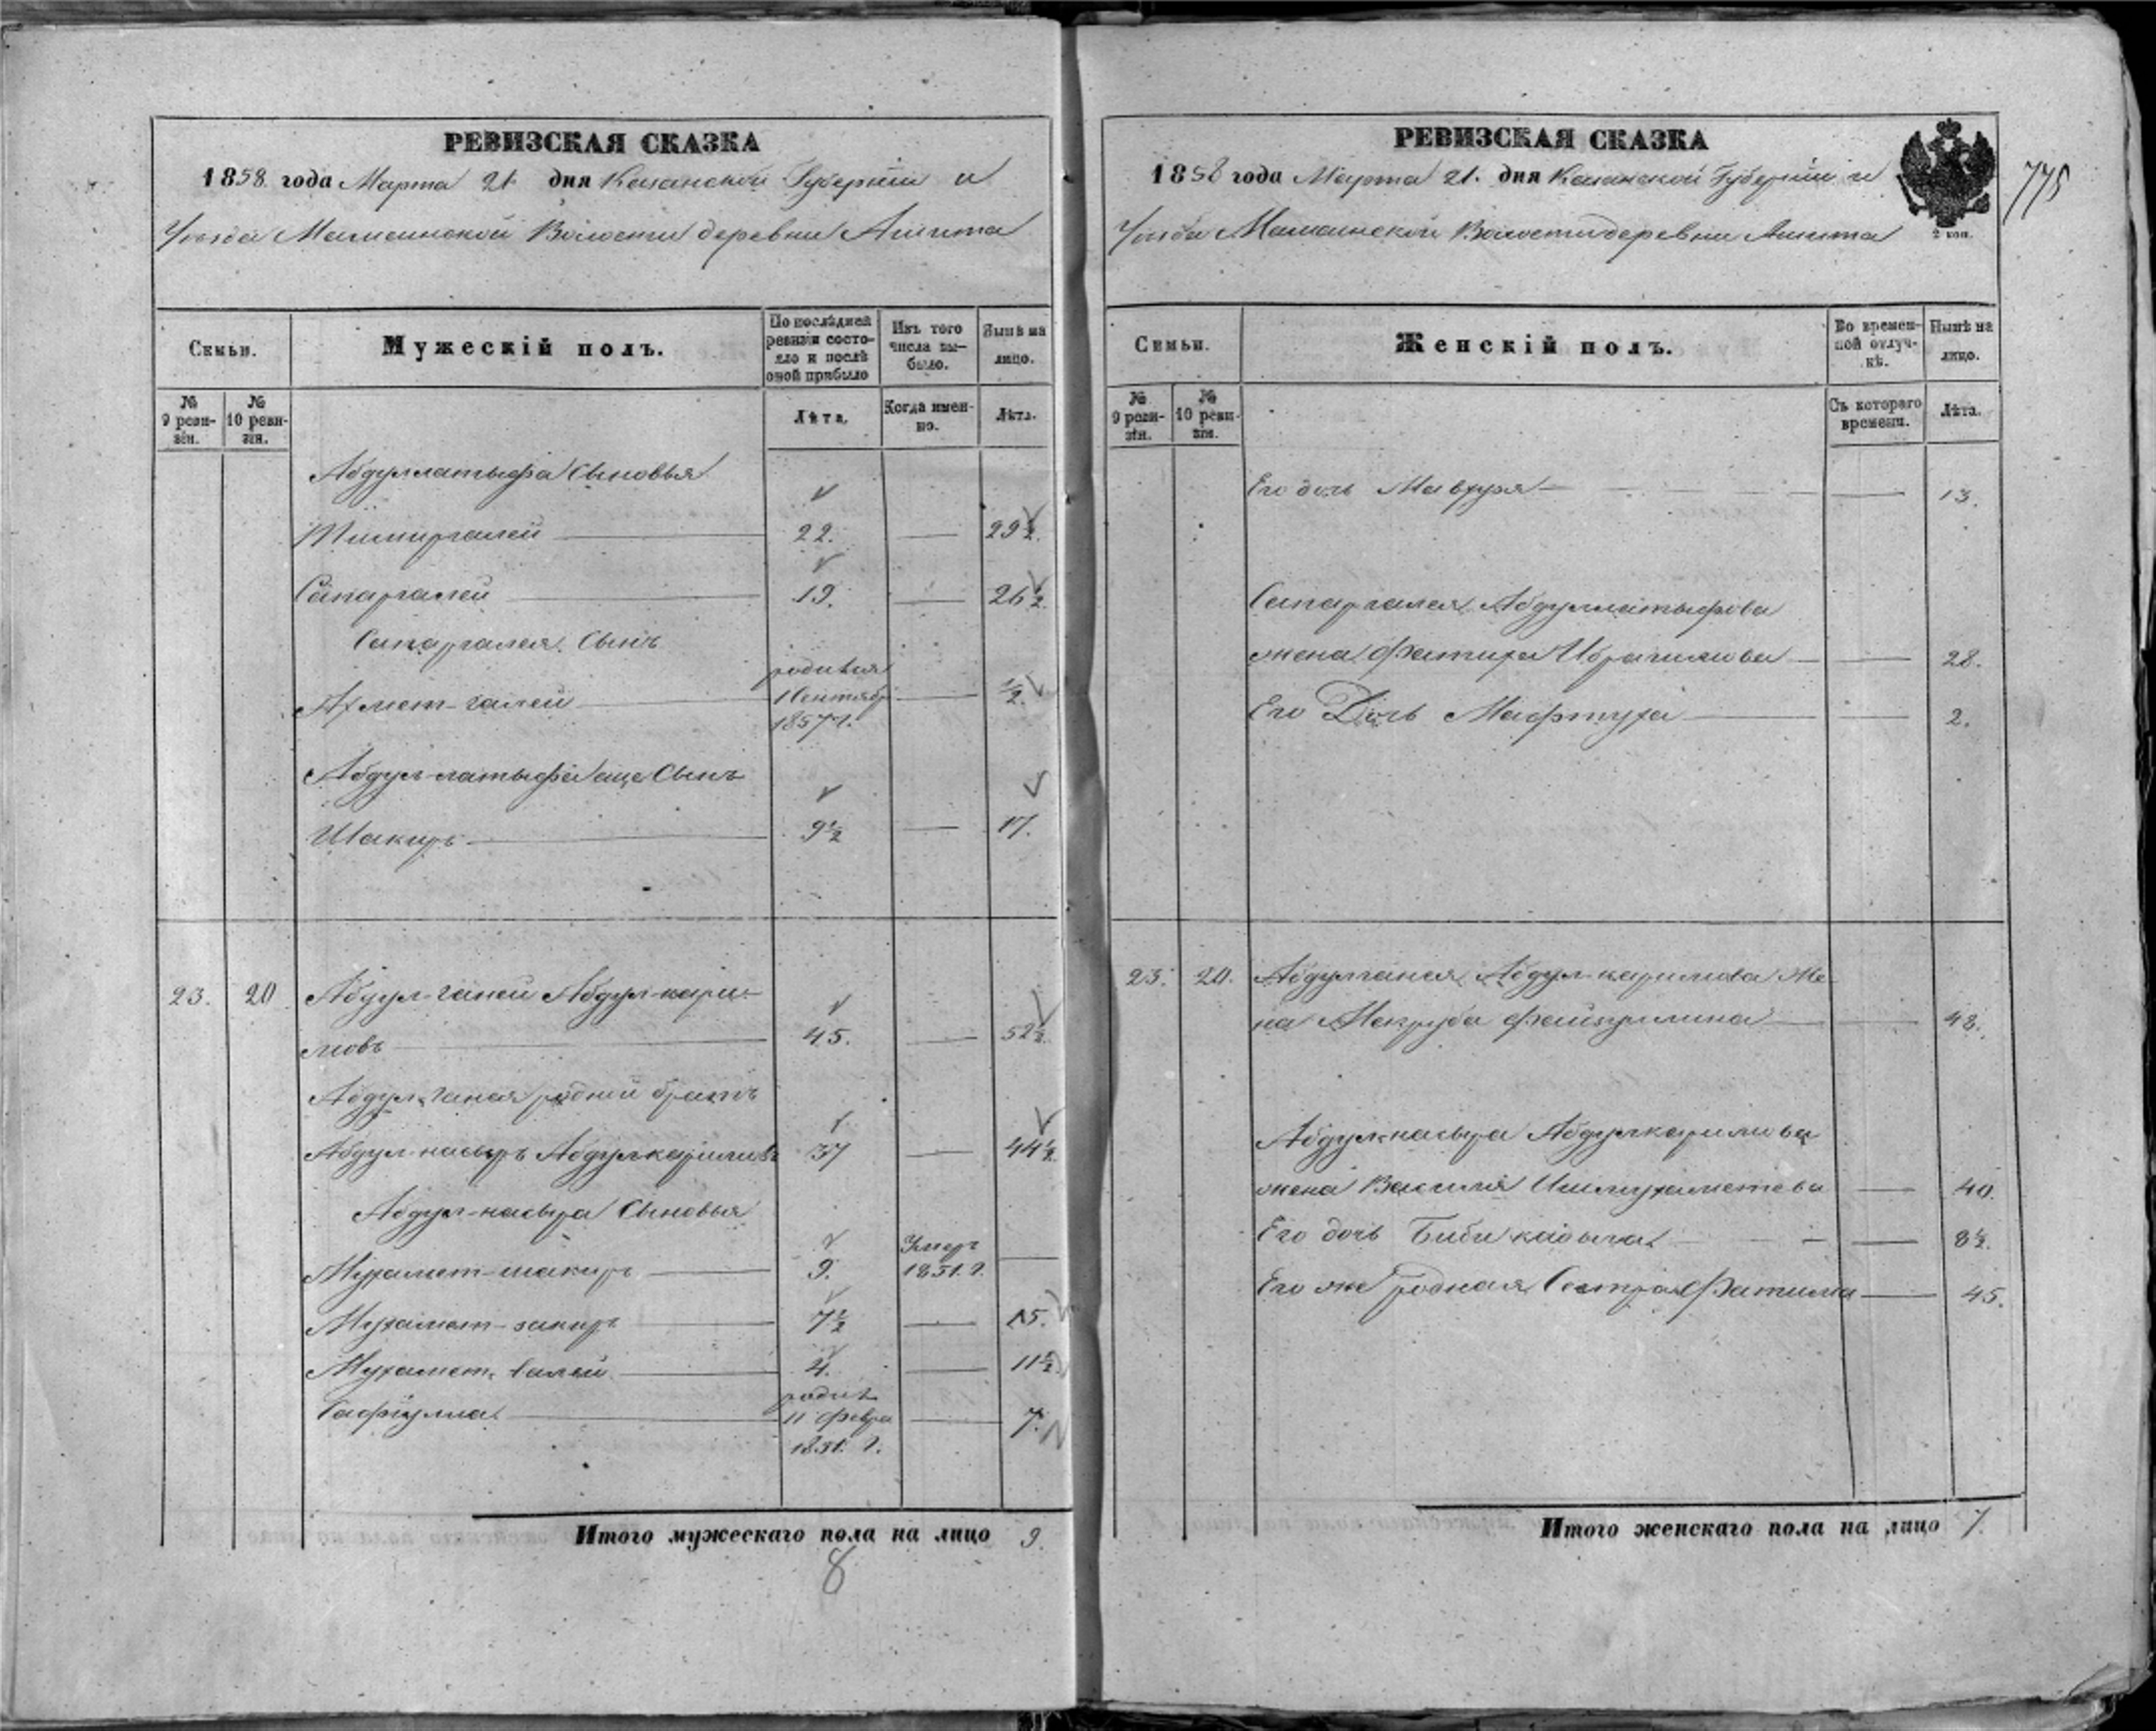 РЕВИЗСКАЯ СКАЗКА
1858 года Марта 21 дня Казанской Губернии и
Уезда Мамсинской Волости деревни Ашита
Семьи.
Мужескій полъ.
По послѣдней ревизіи состояло и послѣ оной прибыло
Изъ того числа выбыло.
Нынѣ на лицо.
№ 9 ревизіи.
№ 10 ревизіи.
Лѣта.
Когда именно.
Лѣта.
Абдуллатыфа Сыновья
Тимиргалей 22. — 29½.
Сапаргалей 19. — 26½.
Сапаргалея Сынъ
Ахмет-галей родився 1 Сентябр 1857 г. — ½.
Абдул-латыфа еще Сынъ
Шакиръ 9½ — 17.
23. 20 Абдул-ганей Абдул-кари-
мовъ 45. — 52½.
Абдул-ганея родной братъ
Абдул-насыръ Абдулкаримовъ 37 — 44½.
Абдул-насыра Сыновья
Мухамет-шакиръ 9. Умеръ 1851. г. —
Мухамет-закиръ 7½ — 15.
Мухамет-валей 4. — 11½
Сафіулла родил 11 февра 1851. г. — 7.
Итого мужескаго пола на лицо 9.
8
РЕВИЗСКАЯ СКАЗКА
1858 года Марта 21. дня Казанской Губернии и
Уезда Мамсинской Волости деревни Ашита
2 коп.
775
Семьи.
Женскій полъ.
Во временной отлучкѣ.
Нынѣ на лицо.
№ 9 ревизіи.
№ 10 ревизіи.
Съ котораго времени.
Лѣта.
Его дочь Мавзуря — — 13.
Сапаргалея Абдуллатыфова
жена Фатиха Ибрагимова — — 28.
Его Дочь Мафтуха — — 2.
23. 20. Абдулганея Абдул-каримова Же-
на Макруба Файзуллина — — 48.
Абдулнасыра Абдулкаримова
жена Василя Ишмухаметева — 40.
Его дочь Биби кадыча — — 8½.
Его же родная Сестра Фатима — 45.
Итого женскаго пола на лицо 7.